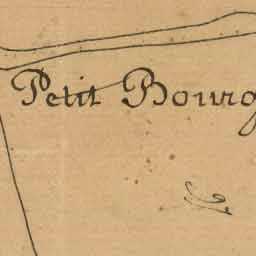 Petit Bourg